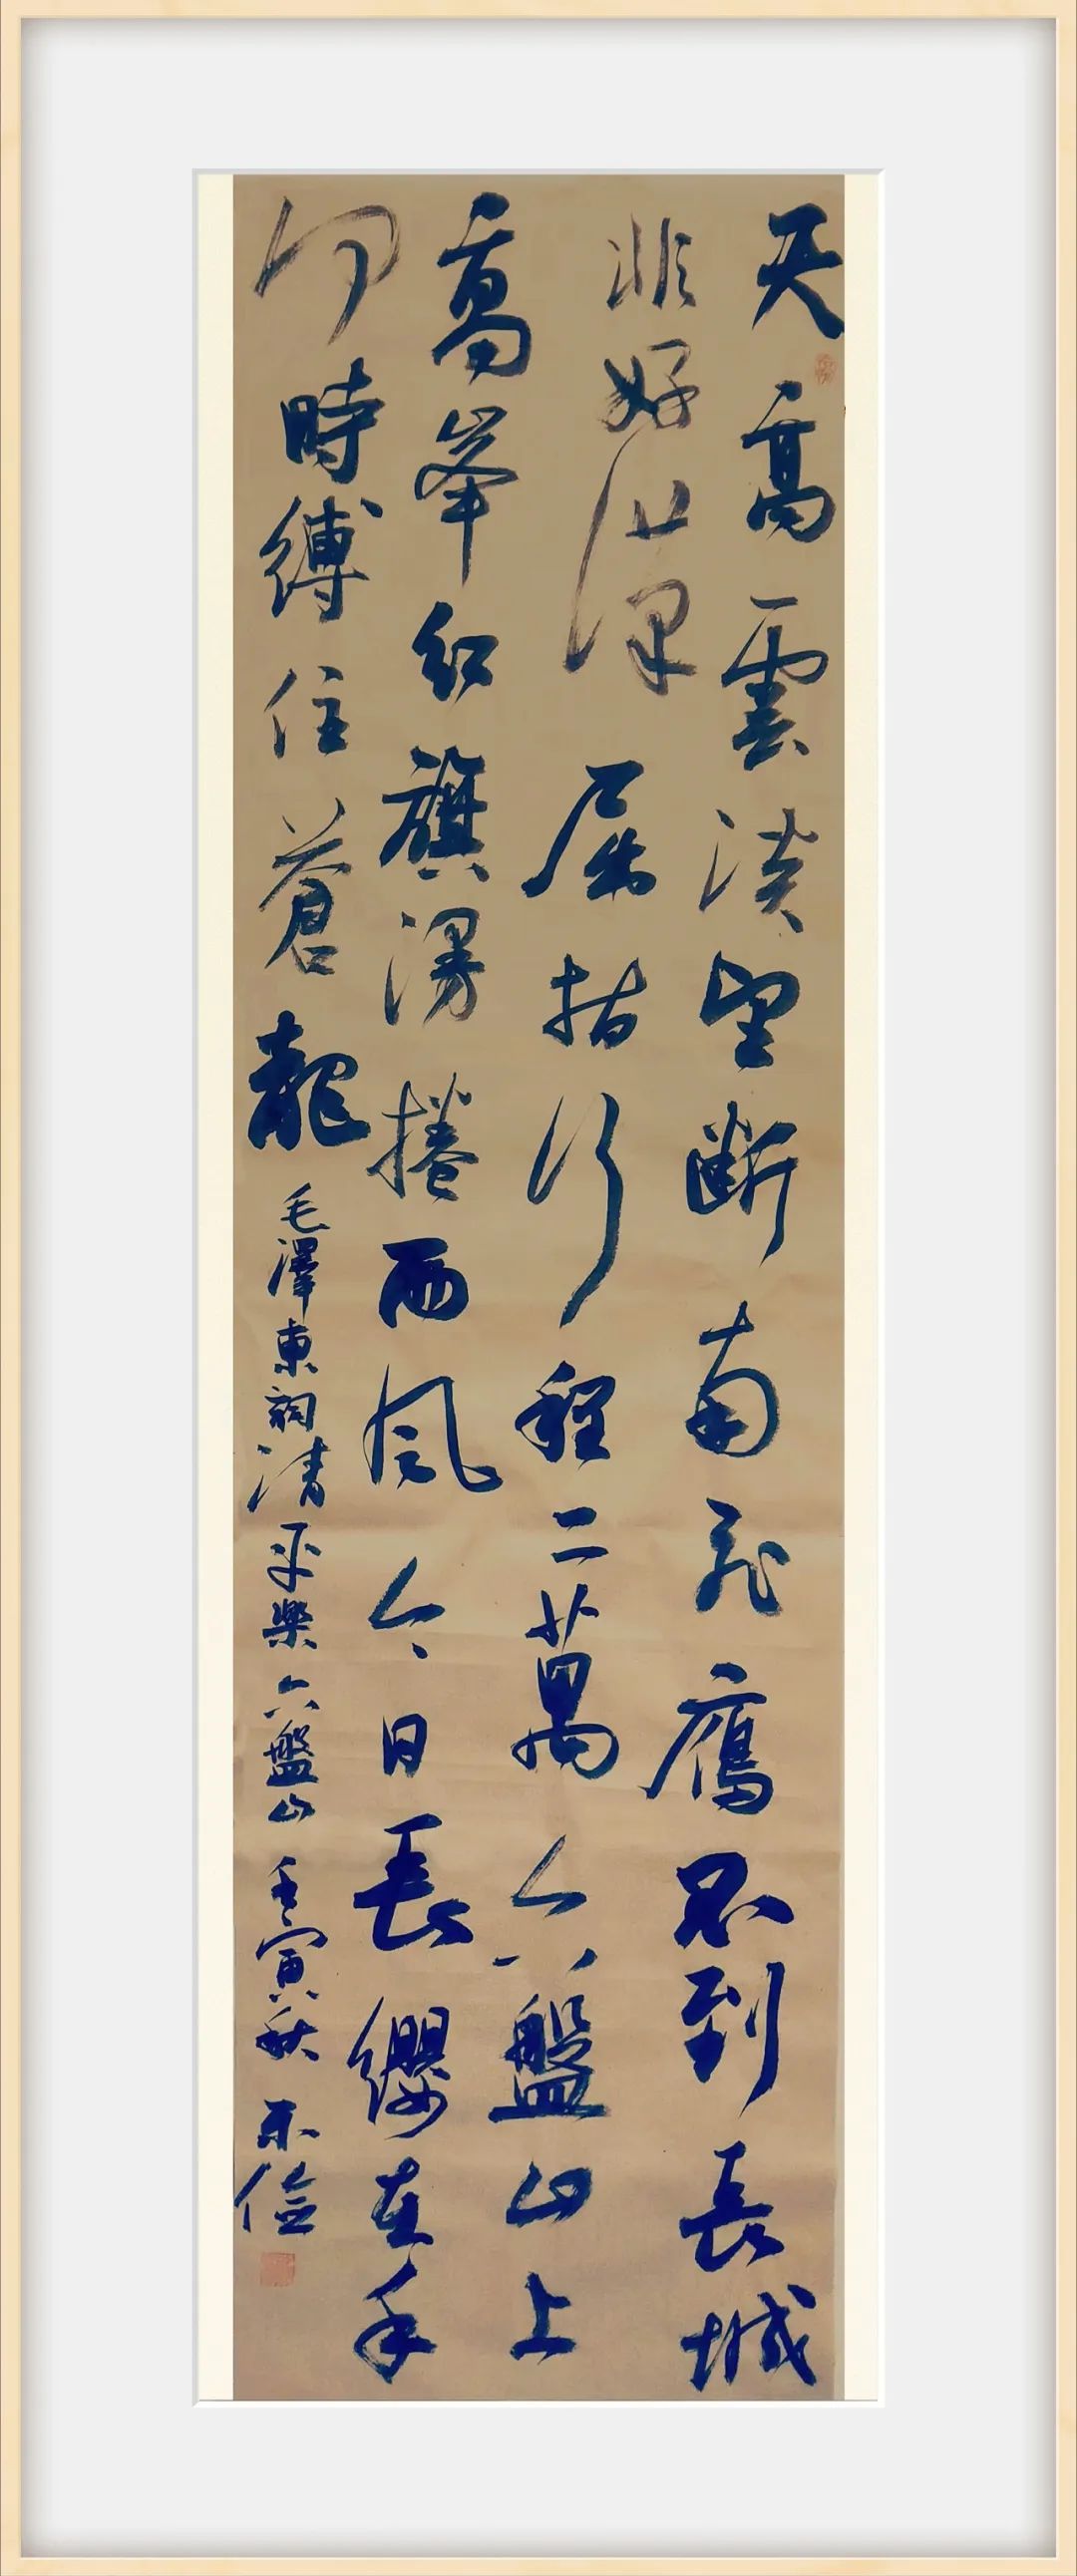 天高雲淡望斷南飛鴈不到長城
非好漢屈指行程二萬六盤山上
高峯紅旗漫捲西風今日長纓在手
何時縛住蒼龍 毛澤東詞清平樂六盤山 壬寅秋